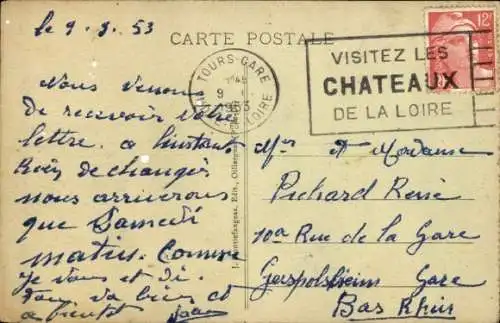 le 9.3.53
CARTE POSTALE
TOURS-GARE
9
1953
LOIRE
VISITEZ LES
CHATEAUX
DE LA LOIRE
12
Nous venons
de recevoir votre
lettre. a l'instant
Rien de changer
nous arriverons
que Samedi
matin. Comme
je vous et di.
Tous va bien et
a bientot
Mr et Madame
Pichard René
10a Rue de la Gare
Geispolsheim Gare
Bas Rhin